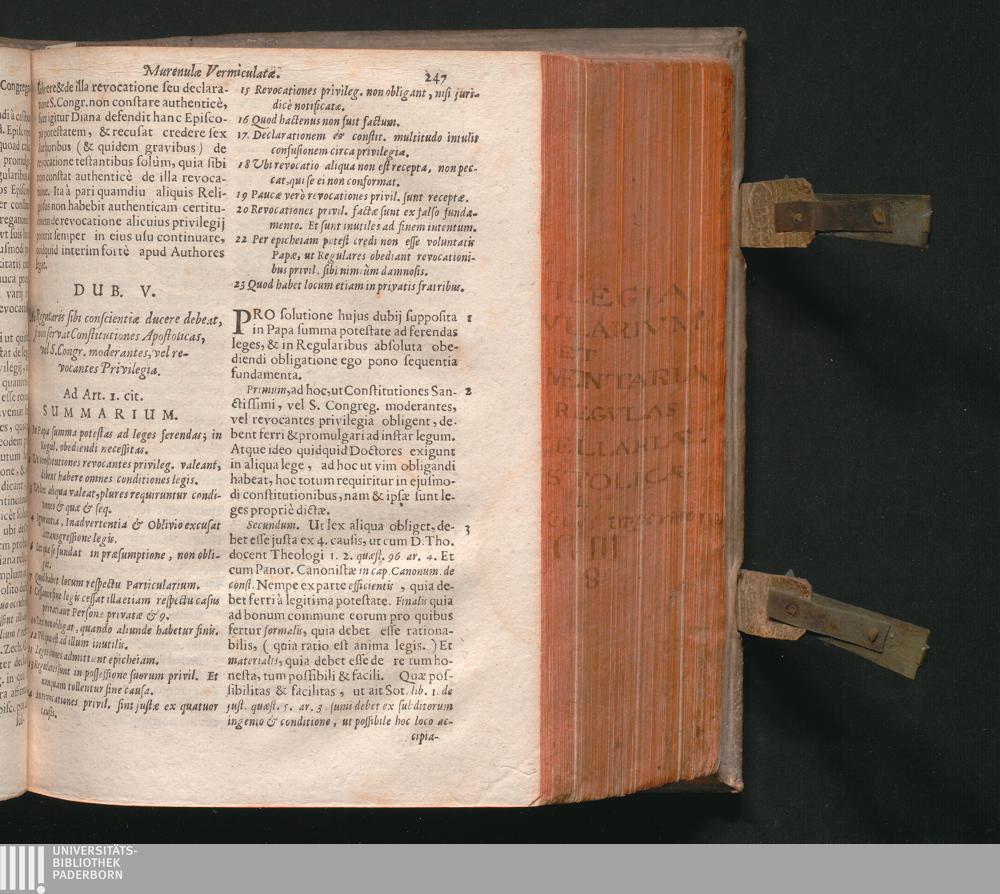 Murenulæ Vermiculatæ.
247
&de illa revocatione seu declara-
S. Congr. non constare authenticè,
igitur Diana defendit hanc Episco-
potestatem, & recusat credere sex
Authoribus (& quidem gravibus) de
revocatione testantibus solùm, quia sibi
non constat authenticè de illa revoca-
Ita à pari quamdiu aliquis Reli-
non habebit authenticam certitu-
de revocatione alicuius privilegij
poterit semper in eius usu continuare,
quidquid interim fortè apud Authores
legit.
DUB. V.
Regularis sibi conscientiæ ducere debeat,
servat Constitutiones Apostolicas,
vel S. Congr. moderantes, vel re-
vocantes Privilegia.
Ad Art. 1. cit.
SUMMARIUM.
In Papa summa potestas ad leges ferendas; in
Regul. obediendi necessitas.
Constitutiones revocantes privileg. valeant,
debent habere omnes conditiones legis.
lex aliqua valeat, plures requiruntur condi-
tiones & quæ & seq.
Ignorantia, Inadvertentia & Oblivio excusat
transgressione legis.
Lex quæ se fundat in præsumptione, non obli-
gat.
7 Quod habet locum respectu Particularium.
legis cessat illa etiam respectu casus
aut Personæ privatæ & 9.
non obligat, quando aliunde habetur finis.
est ad illum inutilis.
Leges admittunt epicheiam.
Regulares sunt in possessione suorum privil. Et
nunquam tollentur sine causa.
revocationes privil. sint justæ ex quatuor
causis.
15 Revocationes privileg. non obligant, nisi juri-
dicè notificatæ.
16 Quod hactenus non fuit factum.
17. Declarationem & constit. multitudo intulit
confusionem circa privilegia.
18 Ubi revocatio aliqua non est recepta, non pec-
cat, qui se ei non conformat.
19 Paucæ verò revocationes privil. sunt receptæ.
20 Revocationes privil. factæ sunt ex falso funda-
mento. Et sunt inutiles ad finem intentum.
22 Per epicheiam potest credi non esse voluntatis
Papæ, ut Regulares obediant revocationi-
bus privil. sibi nimiùm damnosis.
23 Quod habet locum etiam in privatis fratribus.
PRO solutione hujus dubij supposita 1
in Papa summa potestate ad ferendas
leges, & in Regularibus absoluta obe-
diendi obligatione ego pono sequentia
fundamenta.
Primum, ad hoc, ut Constitutiones San- 2
ctissimi, vel S. Congreg. moderantes,
vel revocantes privilegia obligent, de-
bent ferri & promulgari ad instar legum.
Atque ideo quidquid Doctores exigunt
in aliqua lege, ad hoc ut vim obligandi
habeat, hoc totum requiritur in ejusmo-
di constitutionibus, nam & ipsæ sunt le-
ges propriè dictæ.
Secundum. Ut lex aliqua obliget, de- 3
bet esse justa ex 4. causis, ut cum D. Tho.
docent Theologi 1. 2. quæst. 96 ar. 4. Et
cum Panor. Canonistæ in cap. Canonum. de
const. Nempe ex parte efficientis, quia de-
bet ferri à legitima potestate. Finalis quia
ad bonum commune eorum pro quibus
fertur formalis, quia debet esse rationa-
bilis, (quia ratio est anima legis.) Et
materialis, quia debet esse de re tum ho-
nesta, tum possibili & facili. Quæ pos-
sibilitas & facilitas, ut ait Sot. lib. 1. de
just. quæst. 5. ar. 3. sumi debet ex subditorum
ingenio & conditione, ut possibile hoc loco ac-
cipia-
ILEGIA
ULARIVM
ET
MENTARIA
REGVLAS
CELLARIÆ
STOLICÆ
8
UNIVERSITÄTS-
BIBLIOTHEK
PADERBORN